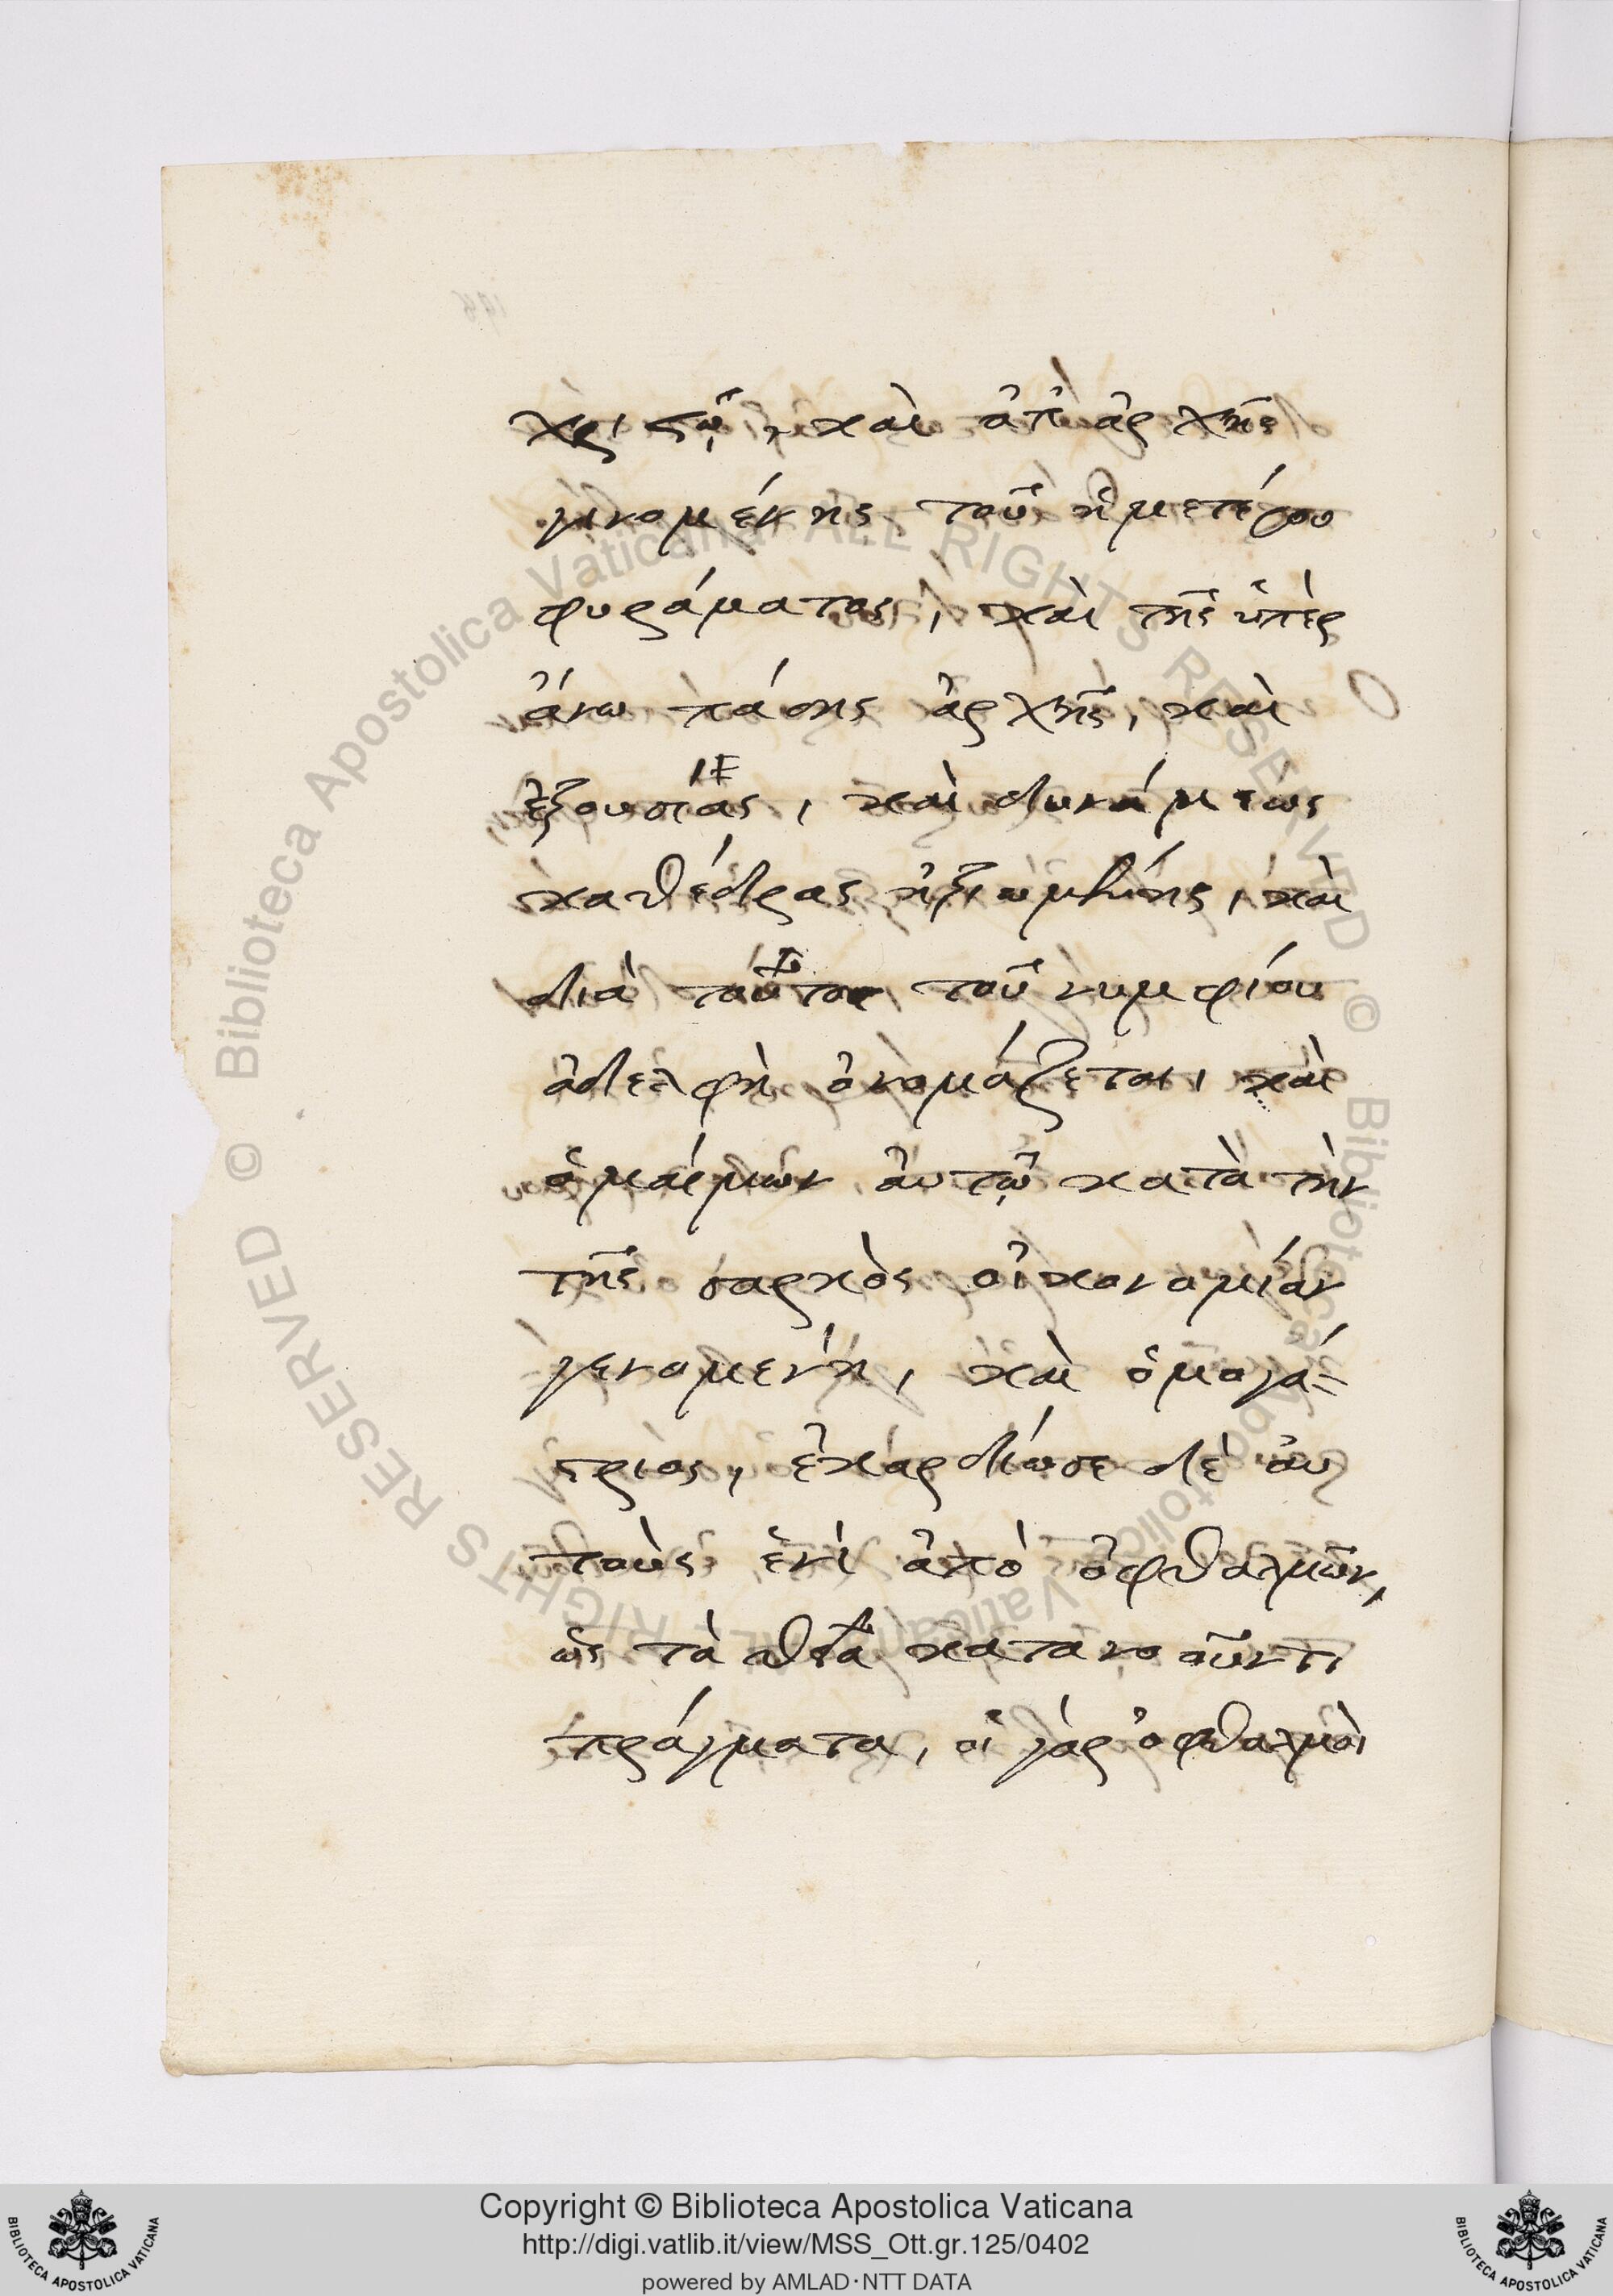 χριστῷ, καὶ ἀπ' ἀρχῆς
γινομένης τοῦ ἡμετέρου
φυράματος, καὶ τῆς ὑπὲρ
ἄνω πάσης ἀρχῆς, καὶ
ἐξουσίας, καὶ δυνάμεως
καθέδρας ἠξιωμένης, καὶ
διὰ τοῦτο τοῦ νυμφίου
ἀδελφὴ ὀνομάζεται, καὶ
ὁμαίμων αὐτῷ κατὰ τὴν
τῆς σαρκὸς οἰκονομίαν
γενομένη, καὶ ὁμογά-
στριος, ἐκαρδίωσε δὲ αὐ
τοὺς ἑνὶ ἀπὸ ὀφθαλμῶν,
ὡς τὰ θεῖα κατανοοῦντι
πράγματα, οἱ γὰρ ὀφθαλμοὶ
Copyright © Biblioteca Apostolica Vaticana
http://digi.vatlib.it/view/MSS_Ott.gr.125/0402
powered by AMLAD·NTT DATA
BIBLIOTECA APOSTOLICA VATICANA
BIBLIOTECA APOSTOLICA VATICANA
© Biblioteca Apostolica Vaticana ALL RIGHTS RESERVED
© Biblioteca Apostolica Vaticana ALL RIGHTS RESERVED